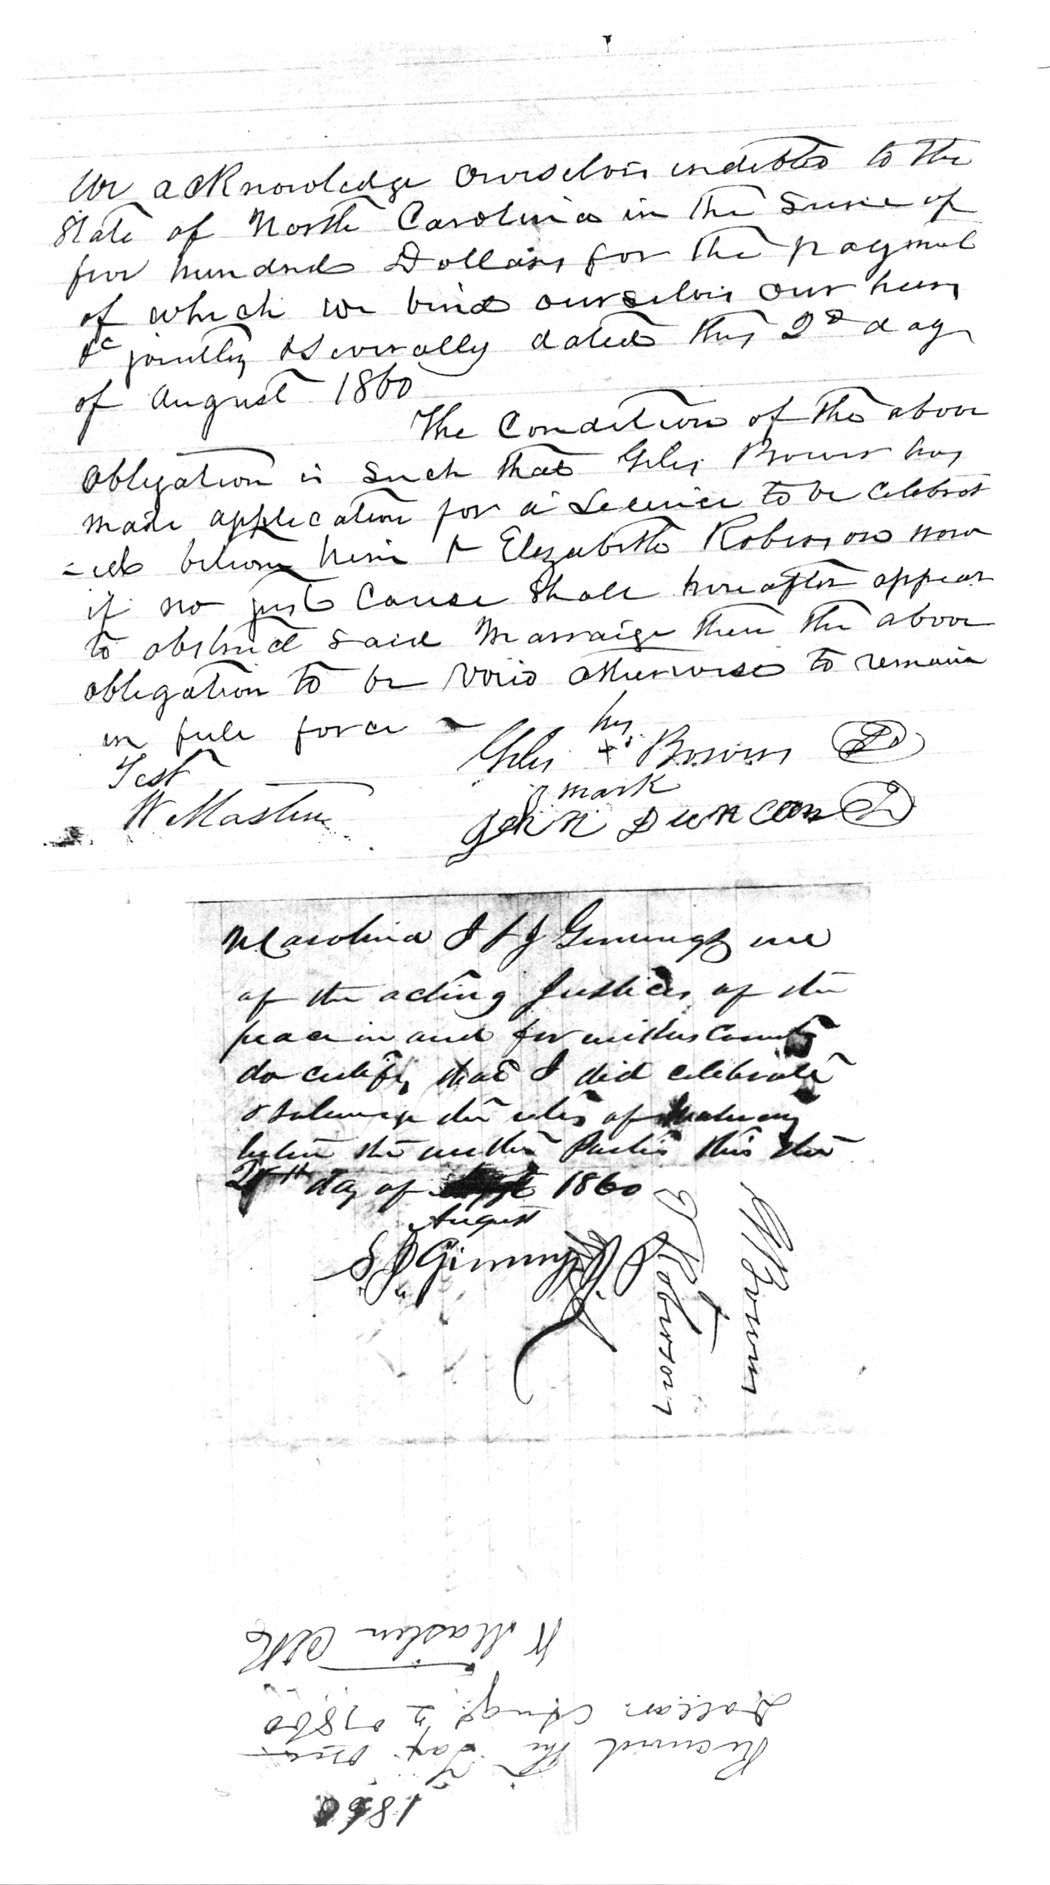 We acknowledge ourselves indebted to the
State of North Carolina in the Sum of
five hundred Dollars for the payment
of which we bind ourselvs our heirs
&c jointly & severally dated this 2d day
of August 1860
The Condition of the above
obligation is such that Giles Bowers has
made application for a Licence to be celebrat
=ed between him & Elizabeth Roberson now
if no just cause shall hereafter appear
to obstruct said Marraige then the above
obligation to be void otherwise to remain
in full force
Test
his
Giles + Bowers
mark
W Mastin
John Duncan
N Carolina I S J Ginnings one
of the acting Justices of the
peace in and for wilkes County
do certify that I did celebrate
& solemnize the rites of Matrimony
betwen the within Parties this the
day of 1860
August
S J Ginnings
G Bowers
Roberson
1860
Received the Tax one
Dollar Augt 2 1860
W Mastin Clk